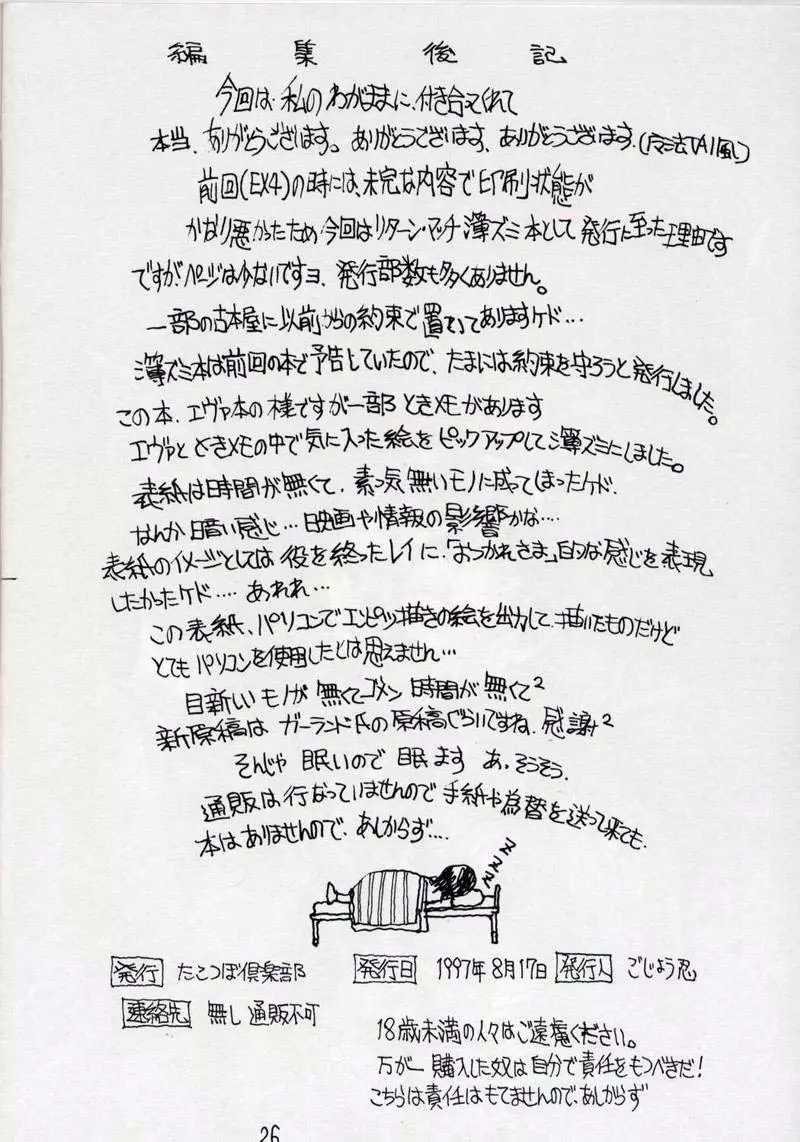 編集後記
今回は私のわがままに付き合ってくれて
本当、ありがとうございます。ありがとうございます、ありがとうございます。
前回(EX4)の時には、未完な内容で印刷状態が
かなり悪かったため今回はリターン・マッチ薄ズミ本として発行に至った理由です
ですがページは少ないですヨ、発行部数も多くありません。
一部の古本屋に以前からの約束で置いてありますケド…
薄ズミ本は前回の本で予告していたので、たまには約束を守ろうと発行しました。
この本、エヴァ本の様ですが一部ときメモがあります
エヴァとときメモの中で気に入った絵をピックアップして薄ズミにしました。
表紙は時間が無くて、素っ気無いモノに成ってしまったケド、
なんか暗い感じ…映画や情報の影響かな…
表紙のイメージとしては役を終ったレイに、「おつかれさま」的な感じを表現
したかったケド…. あれれ…
この表紙、パソコンでエンピツ描きの絵を出力して、描いたものだけど
とてもパソコンを使用したとは思えません…
目新しいモノが無くてゴメン 時間が無くて²
新原稿はガーランド氏の原稿ぐらいですね、感謝²
そんじゃ 眠いので 眠ます あ、そうそう、
通販は行なっていませんので手紙や為替を送って来ても、
本はありませんので、あしからず…
ZZZZ
発行 たこつぼ倶楽部 発行日 1997年8月17日 発行人 ごじょう忍
連絡先 無し 通販不可
18歳未満の人々はご遠慮ください。
万が一購入した奴は自分で責任をもつべきだ!
こちらは責任はもてませんので、あしからず
26